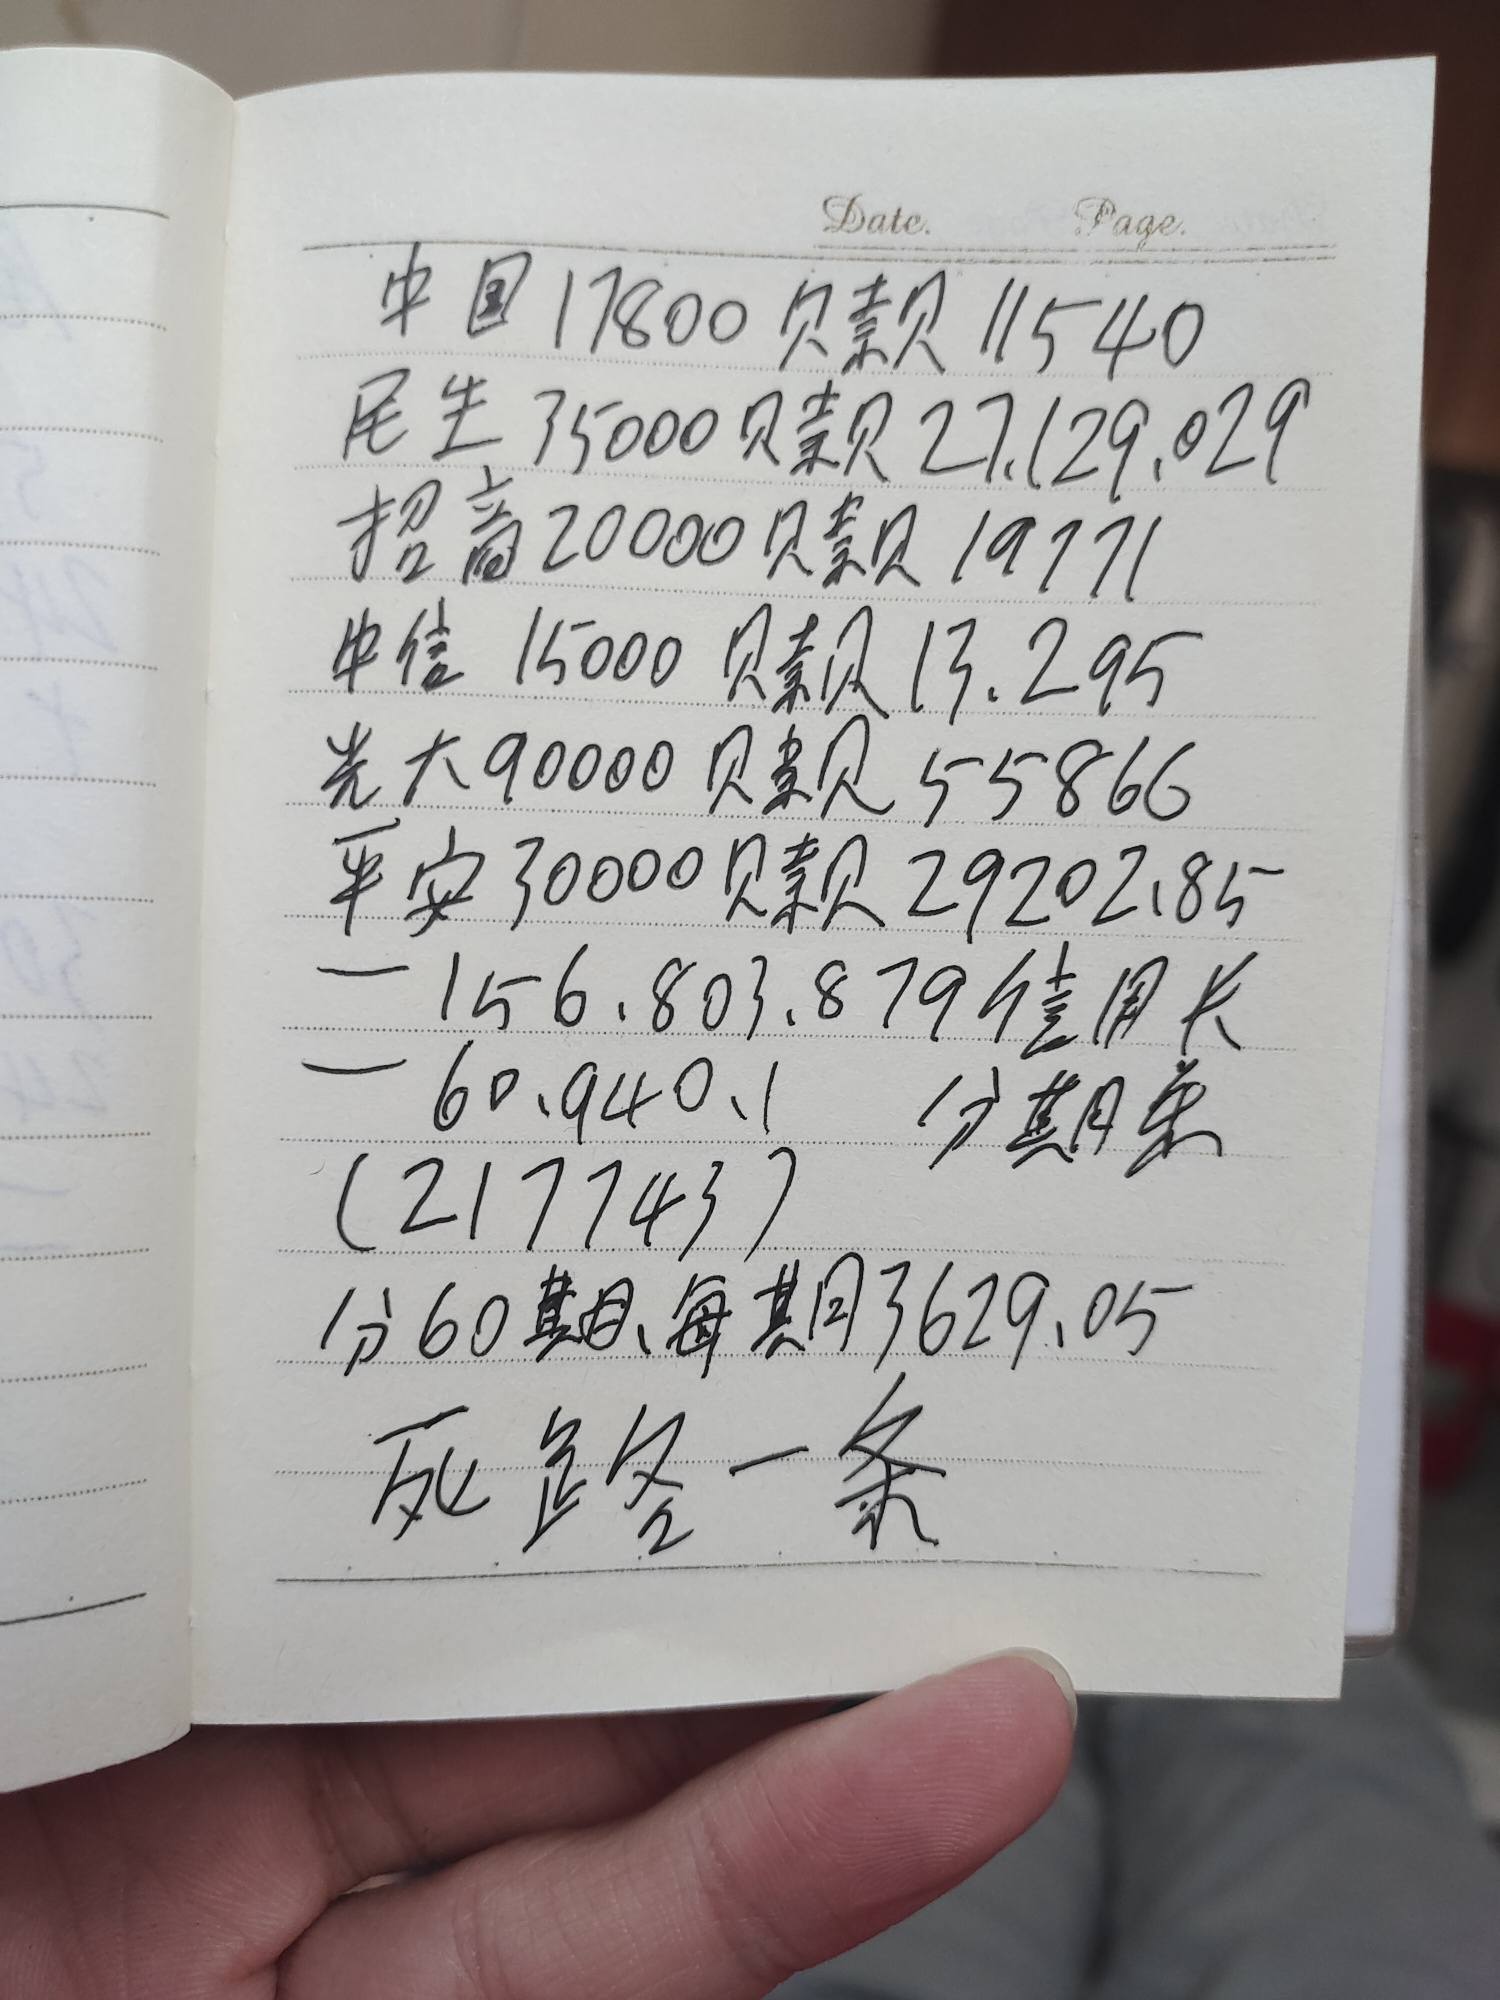 Date. Page.
中国17800欠款11540
民生35000欠款27.129.029
招商20000欠款19771
中信15000欠款13.295
光大90000欠款55866
平安30000欠款29202.85
一156.803.879信用卡
一60.940.1 分期乐
(217743)
分60期、每期3629.05
死路一条